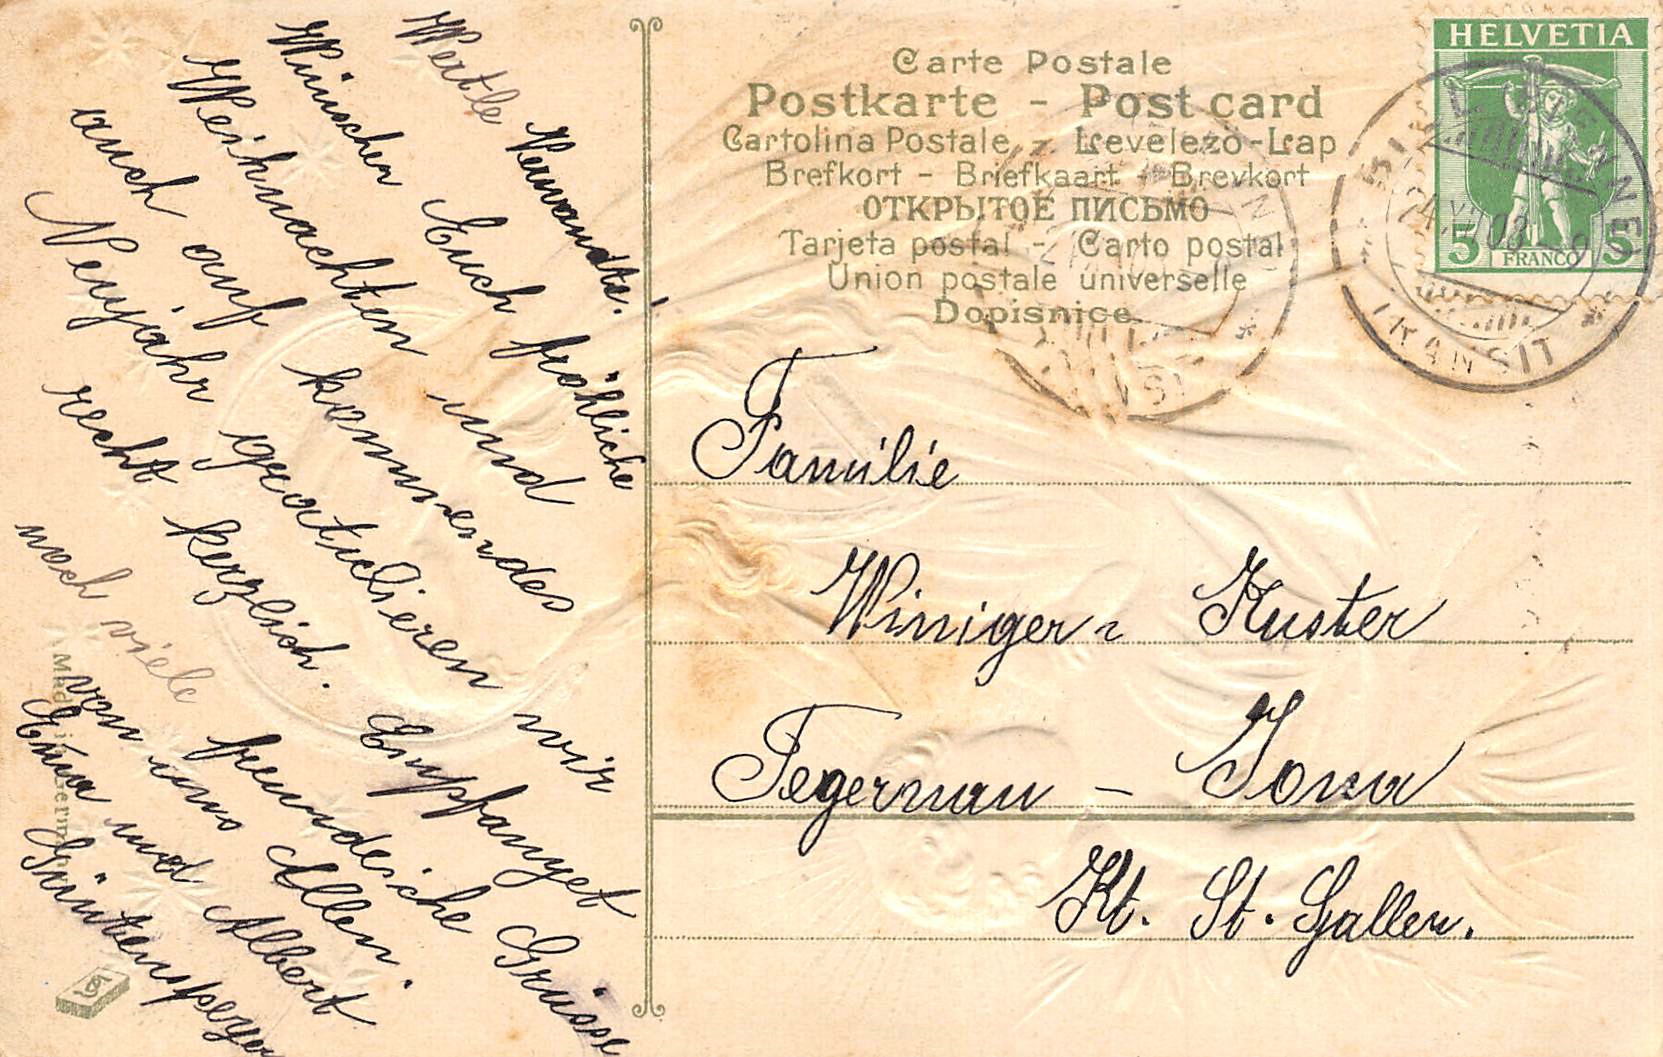 Werte Verwandte!
Wünschen Euch fröhliche
Weihnachten und
auch auf kommendes
Neujahr gratulieren wir
recht herzlich. Empfanget
noch viele freundliche Grüsse
von uns Allen.
Emma und Albert
Carte Postale
Postkarte - Post card
Cartolina Postale - Levelezö-Lap
Brefkort - Briefkaart - Brevkort
ОТКРЫТОЕ ПИСЬМО
Tarjeta postal - Carto postal
Union postale universelle
Dopisnice
HELVETIA
5 FRANCO 5
BIEL BIENNE
24.XII.08-9
TRANSIT
Familie
Winiger-Kuster
Tegernau - Jona
Kt. St. Gallen.